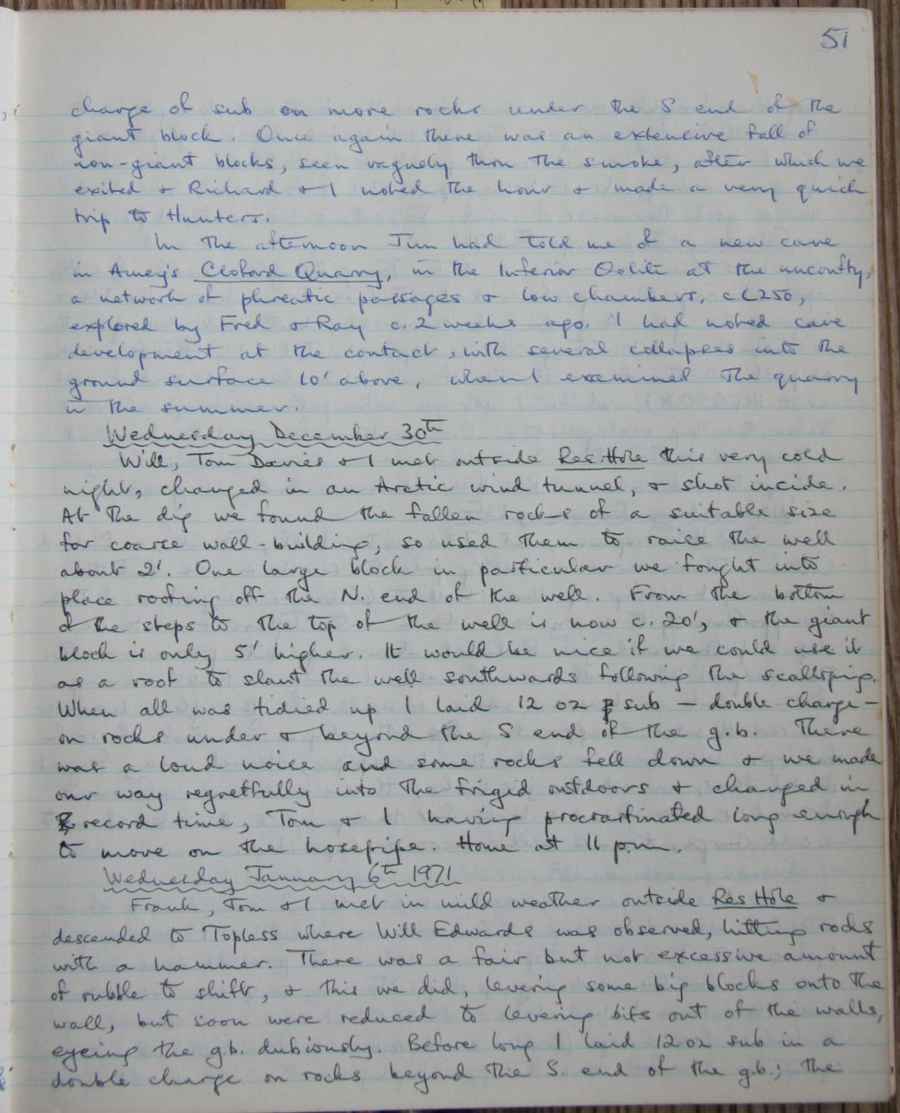 51
charge of sub on more rocks under the S end of the
giant block. Once again there was an extensive fall of
non-giant blocks, seen vaguely thro the smoke, after which we
exited & Richard & I noted the hour & made a very quick
trip to Hunters.
In the afternoon Jim had told me of a new cave
in Amey's Cloford Quarry, in the Inferior Oolite at the unconfty,
a network of phreatic passages & low chambers, c L250,
explored by Fred & Ray c. 2 weeks ago. I had noted cave
development at the contact, with several collapses into the
ground surface 10' above, when I examined the quarry
in the summer.
Wednesday December 30th
Will, Tom Davies & I met outside Res Hole this very cold
night, changed in an Arctic wind tunnel, & shot inside.
At the dig we found the fallen rocks of a suitable size
for coarse wall-building, so used them to raise the well
about 2'. One large block in particular we fought into
place roofing off the N. end of the well. From the bottom
of the steps to the top of the well is now c. 20', & the giant
block is only 5' higher. It would be nice if we could use it
as a roof to slant the well southwards following the scalloping.
When all was tidied up I laid 12 oz sub — double charge —
on rocks under & beyond the S end of the g.b. There
was a loud noise and some rocks fell down & we made
our way regretfully into the frigid outdoors & changed in
record time, Tom & I having procrastinated long enough
to move on the hosepipe. Home at 11 p.m.
Wednesday January 6th 1971
Frank, Tom & I met in mild weather outside Res Hole &
descended to Topless where Will Edwards was observed, hitting rocks
with a hammer. There was a fair but not excessive amount
of rubble to shift, & this we did, levering some big blocks onto the
wall, but soon were reduced to levering bits out of the walls,
eyeing the g.b. dubiously. Before long I laid 12 oz sub in a
double charge on rocks beyond the S. end of the g.b.; the